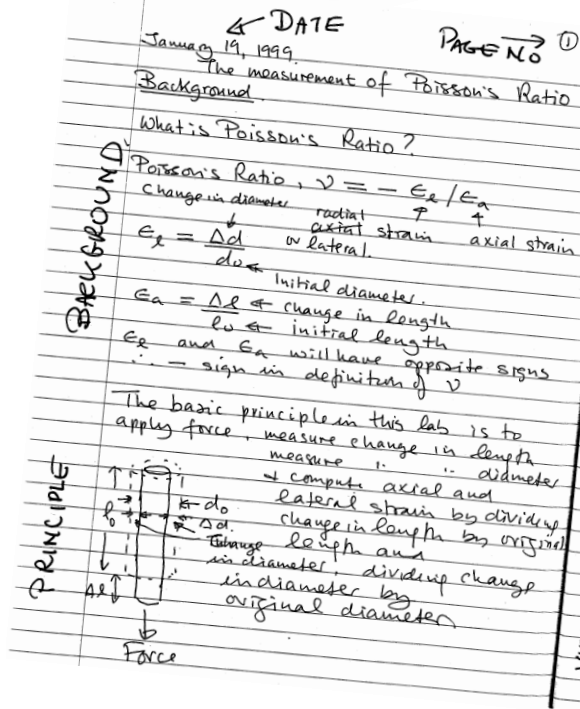 ← DATE
PAGE NO → ①
January 19, 1999.
The measurement of Poisson's Ratio
Background
What is Poisson's Ratio?
BACKGROUND
Poisson's Ratio, ν = - εℓ / εa
Change in diameter
radial
axial strain axial strain
or lateral.
εℓ = Δd / do
Initial diameter.
εa = Δℓ ← change in length
ℓo ← initial length
εℓ and εa will have opposite signs
∴ - sign in definition of ν
PRINCIPLE
The basic principle in this lab is to
apply force, measure change in length
measure " " diameter
+ compute axial and
lateral strain by dividing
change in length by original
length and
dividing change
in diameter by
original diameter
ℓo
do
Δd.
change
in diameter
Δℓ
Force